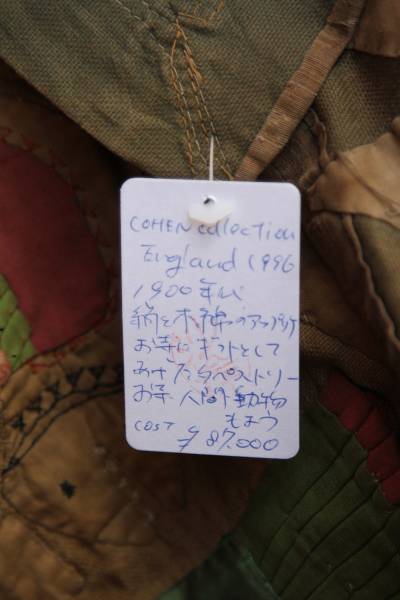 COHEN collection
England (1996
1900年代
絹と木綿のアップリケ
お寺にギフトとして
あげたタペストリー
お寺 人間 動物
もよう
COST ¥87.000